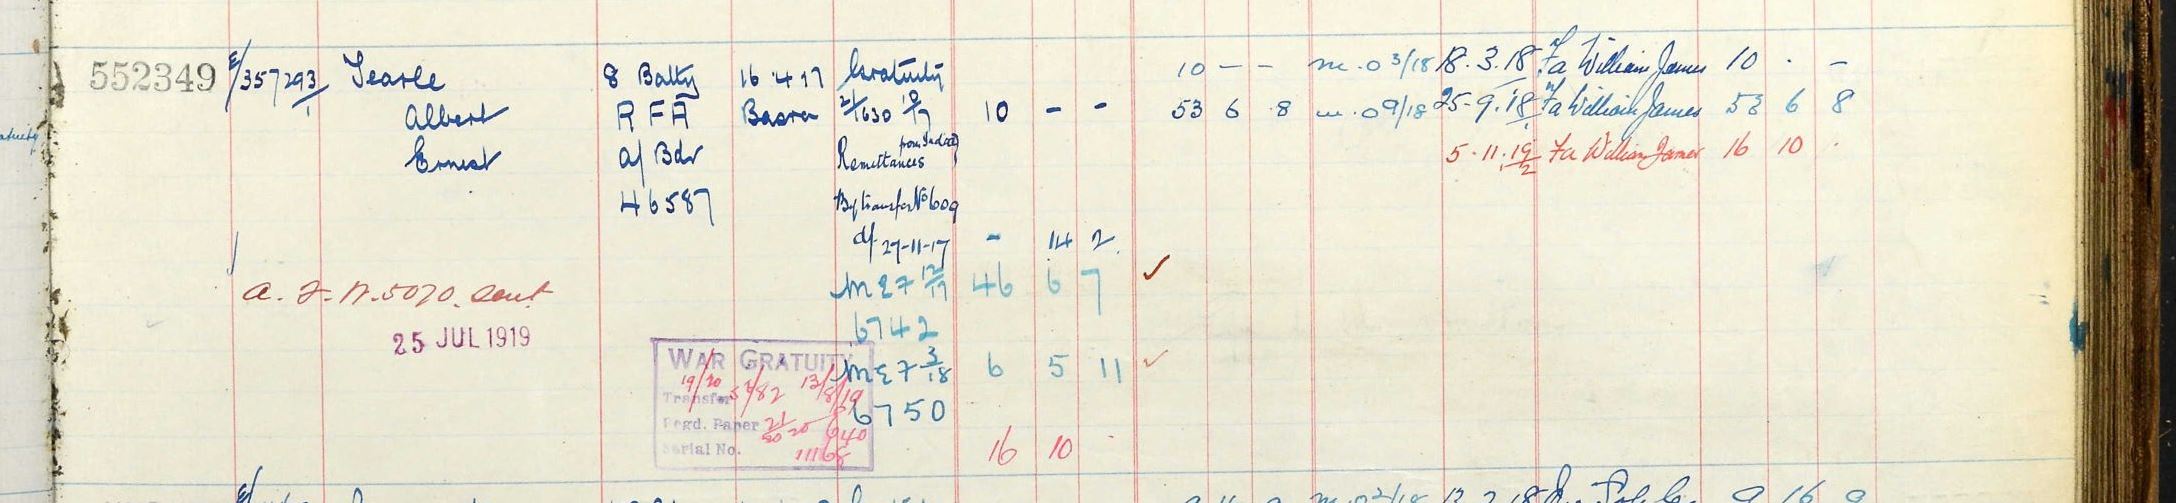 552349 E/357293/1 Searle 8 Batty 16.4.17 Gratuity 10 - - m.03/18 18.3.18 Fa William James 10 . -
Albert R F A Basra 21/1630 10/17 10 - - 53 6 8 m.09/18 25-9.18 Fa William James 53 6 8
Ernest a/Bdr Remittances from India 5.11.19 Fa William James 16 10 .
46587 By transfer No 609
d/ 27-11-17 - 14 2
M E F 12/17 46 6 7 ✓
6742
A. F. W. 5070. Sent
25 JUL 1919
WAR GRATUITY M E F 3/18 6 5 11 ✓
19/20 57/82 13/8/19
Transfer 6750
Regd. Paper 940
Serial No. 16 10 .